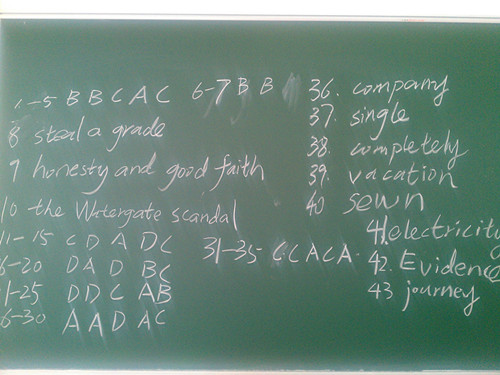 1-5 B B C A C 6-7 B B
8 steal a grade
9 honesty and good faith
10 the Watergate scandal
11-15 C D A D C
6-20 D A D B C
1-25 D D C A B
6-30 A A D A C
31-35 C C A C A
36. company
37. single
38. completely
39. vacation
40 sewn
41. electricity
42. Evidence
43 journey